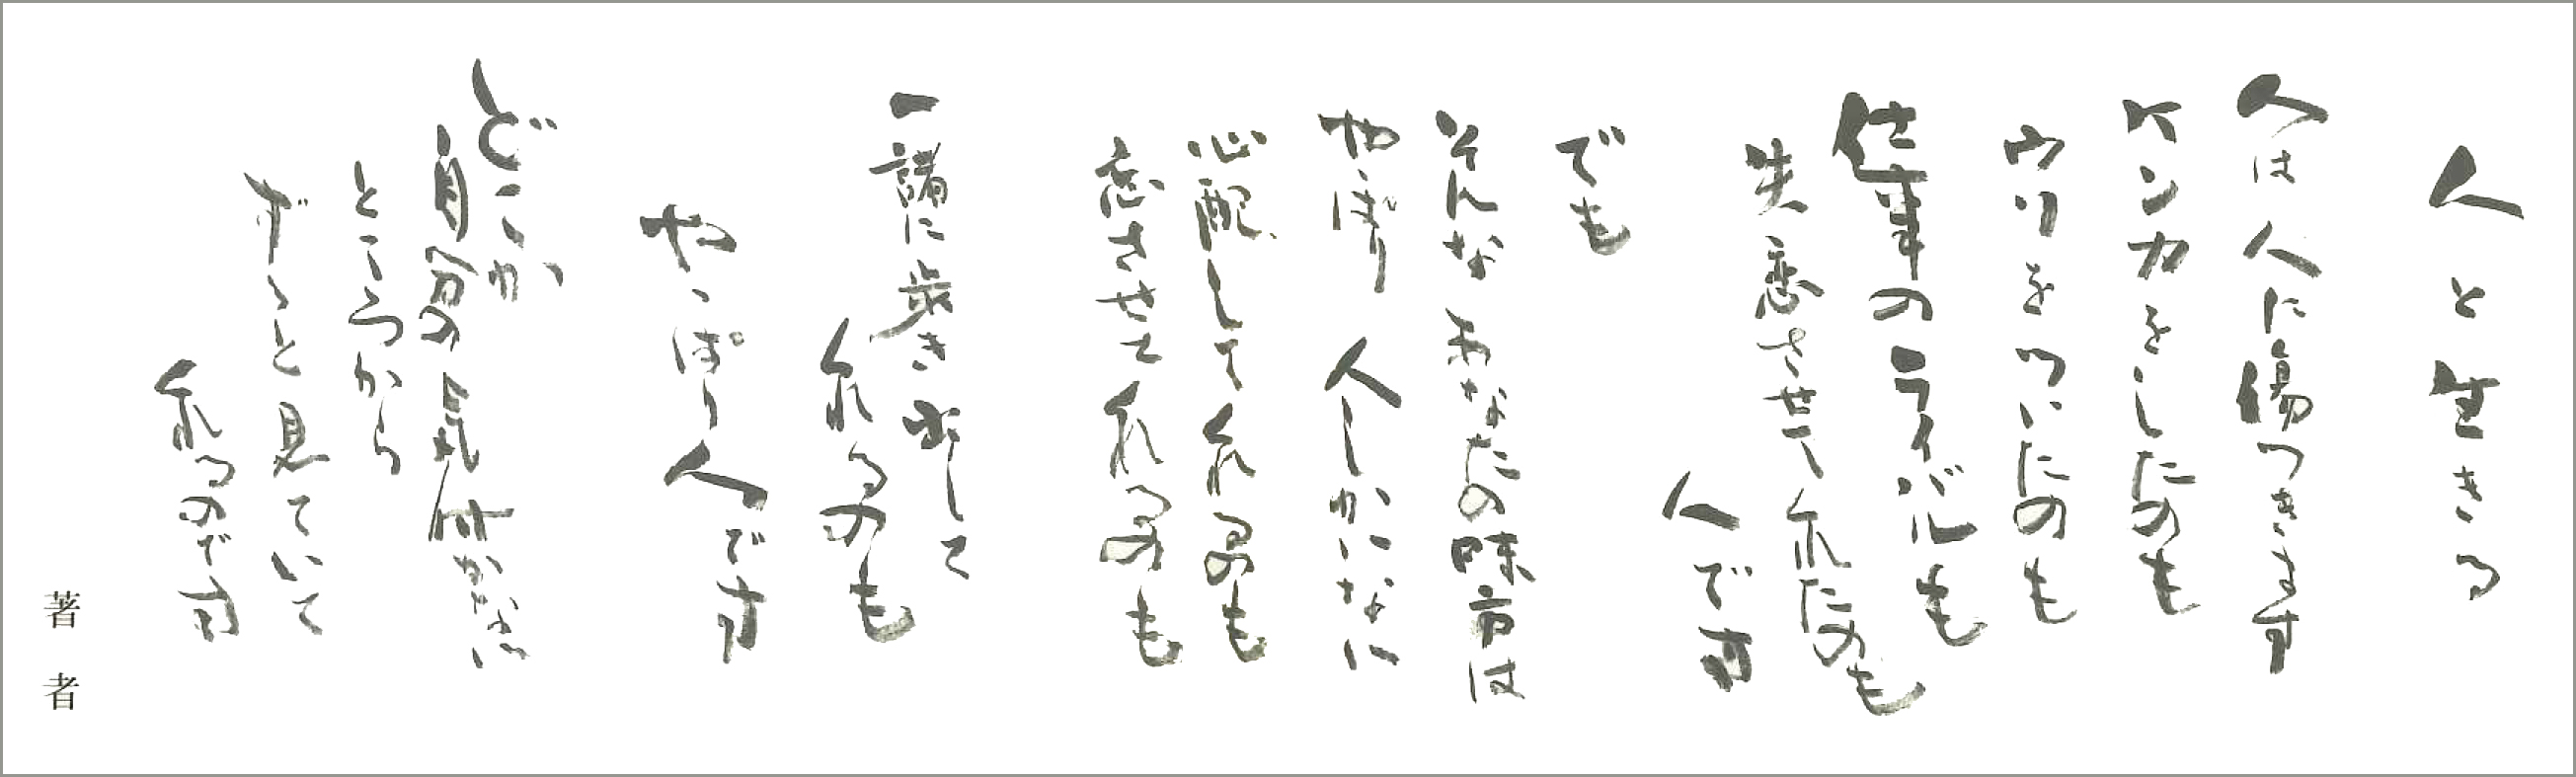 人と生きる
人は人に傷つきます
ケンカをしたのも
ウソをついたのも
仕事のライバルも
失恋させてくれたのも
人です
でも
そんなあなたの味方は
やっぱり人しかいないに
心配してくれるのも
忘させてくれるのも
一諸に歩き出して
くれるのも
やっぱり人です
どこか
自分の気付かない
ところから
ずっと見ていて
くれるのです
著者